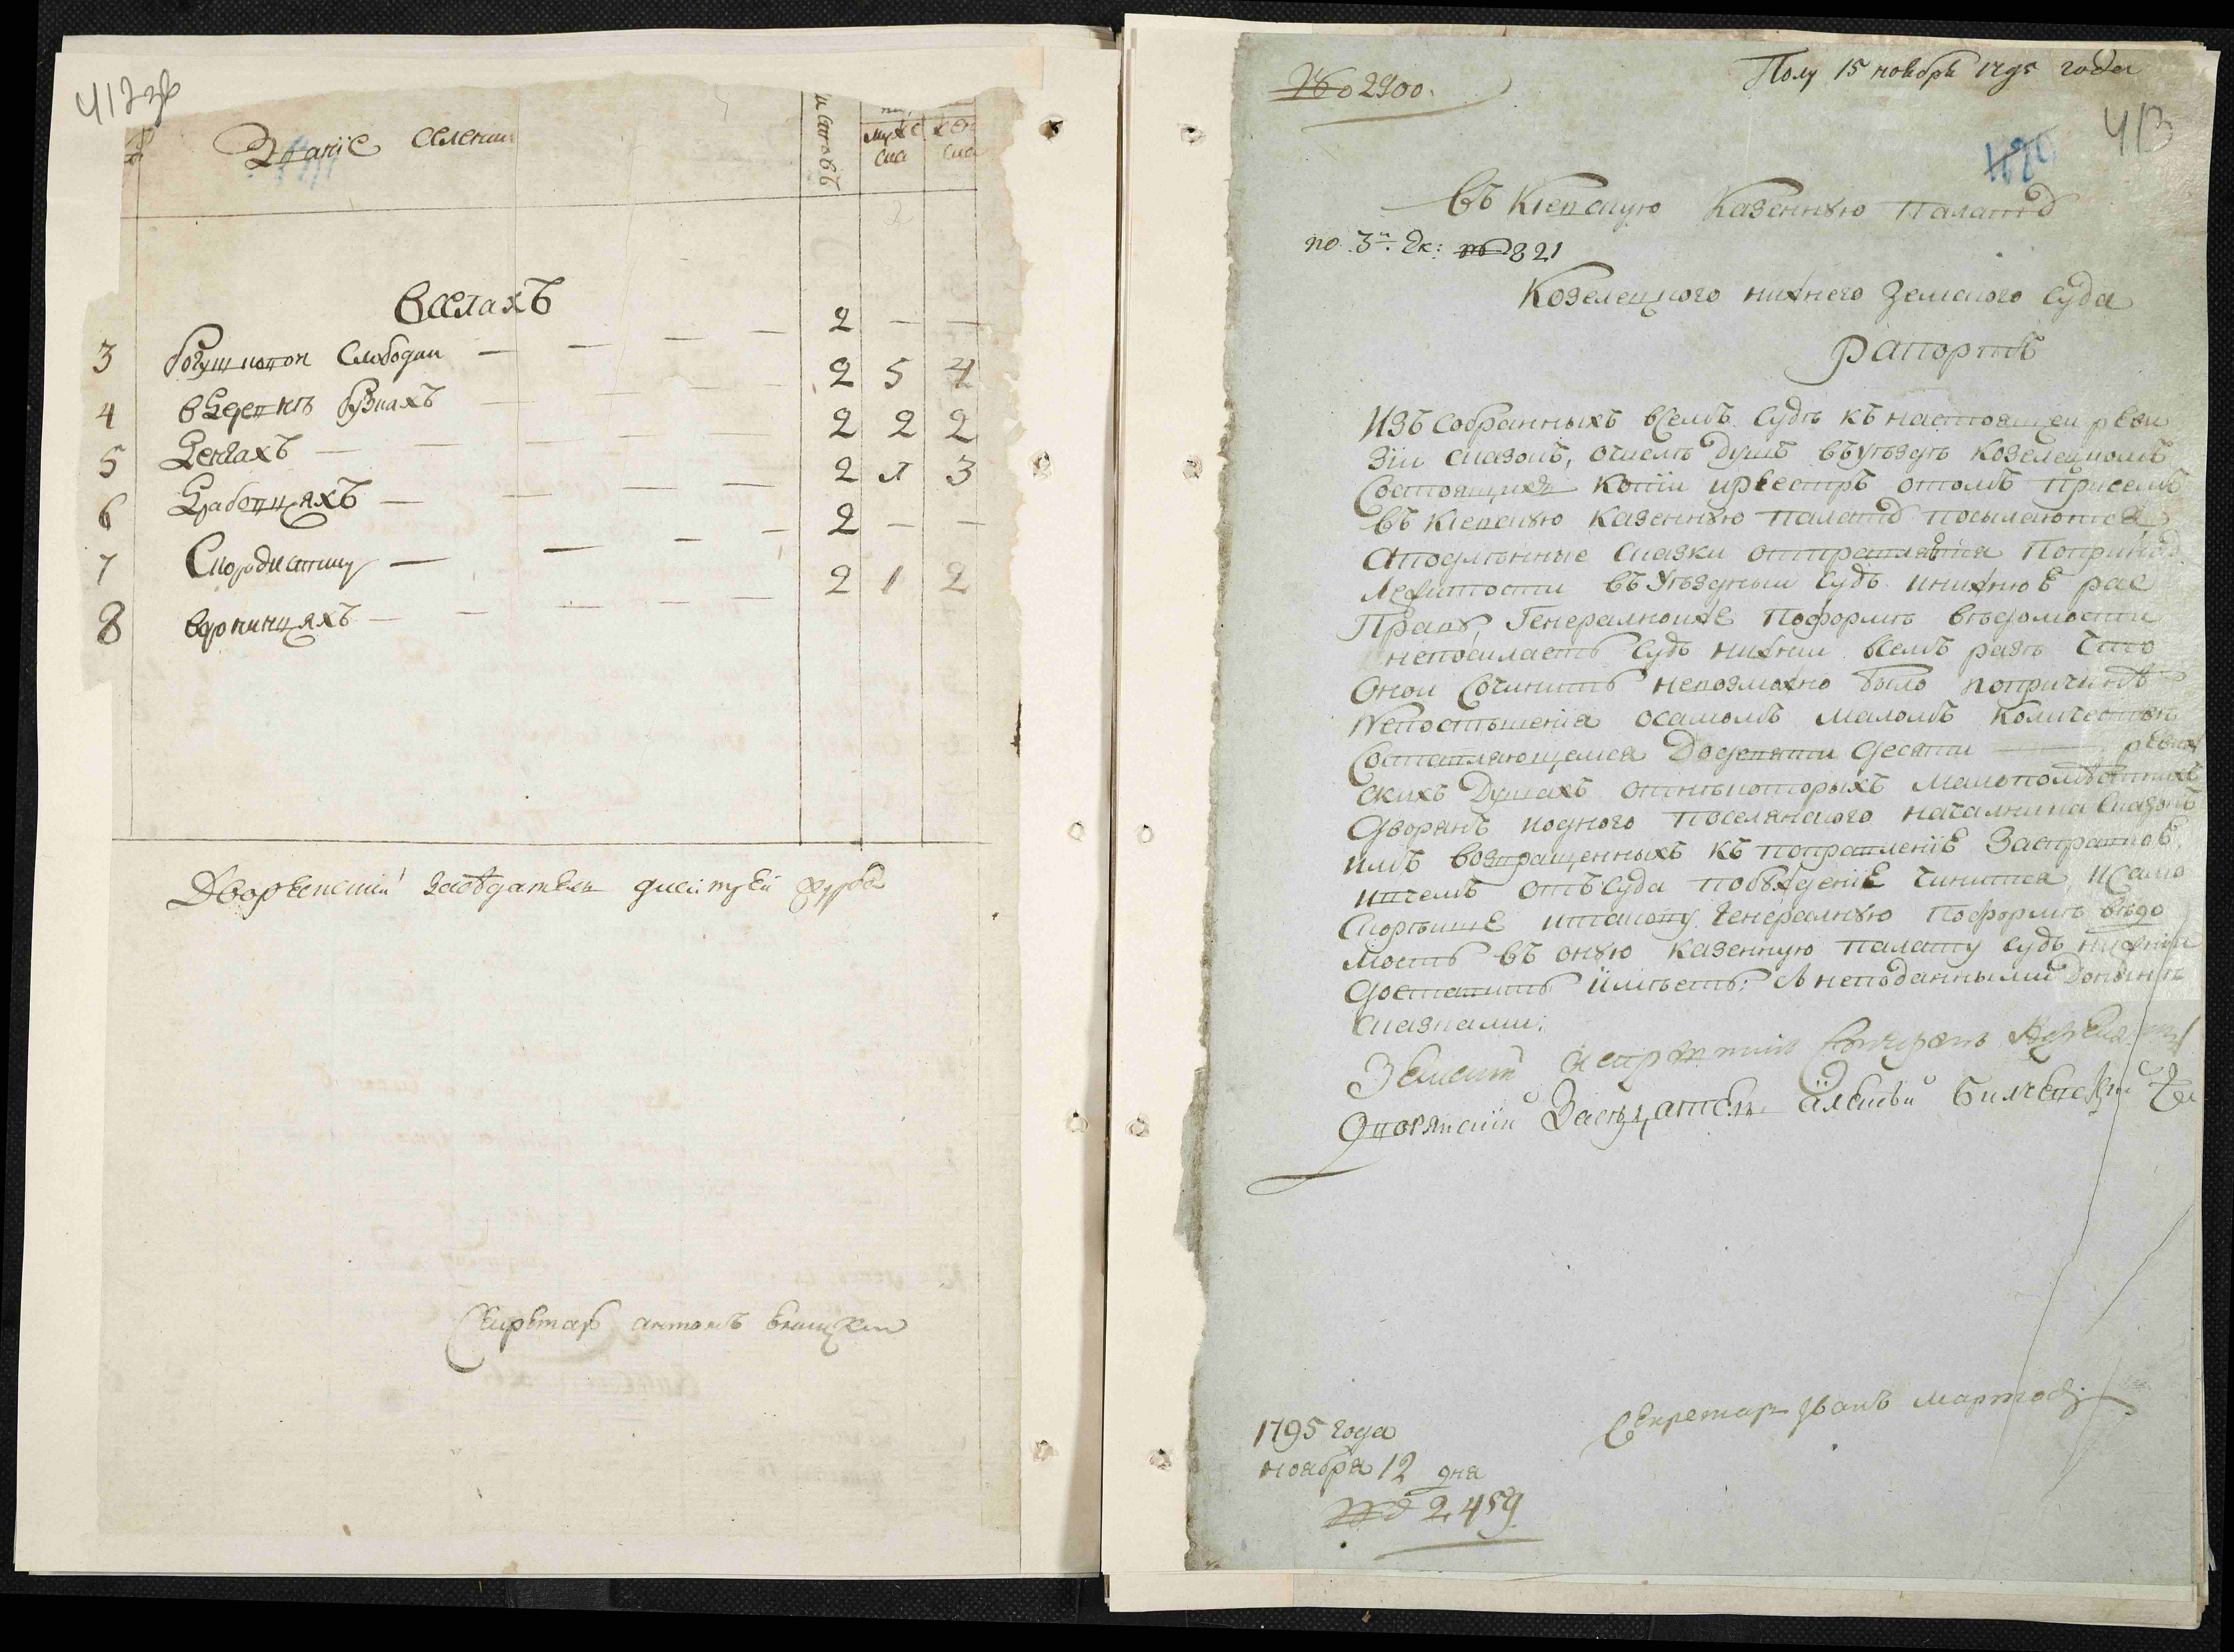 412 зв
Званіе селении
листовъ
муже
ска
жен
ска
в селахъ
2 — —
3 Богушковои слободки — 2 5 4
4 2 2 2
5 Денгахъ — 2 л 3
6 Драбовцяхъ — 2 — —
7 Скородистику — 2 1 2
8 вдонинцяхъ —
Дворенскии заседатель
Секретарь антонъ
№ 2900.
Полу 15 ноября 1795 года
413
въ Киевскую Казенную палату
по 3й Эк: № 821
Козелецкого нижнего земского суда
Рапортъ
Изъ собранныхъ всемъ суде къ настоящеи реви
зіи сказокъ, очисле душъ въ уезде козелецкомъ
состоящихъ копіи иреестръ отомъ присемъ
въ Киевскую казенную палату посылаются
а подлинные сказки отправляются
въ Уездныи судъ инижнюю рас
Праву, Генералноиже поформе ведомости
непосилаетъ судъ нижнии всемъ разе что
Онои сочинить невозможно было попричине
Непоспешенія осамомъ маломъ количестве
составляющемся додевяти десяти — ревиж
скихъ душахъ отнекоторыхъ малопоместнихъ
Дворянъ иодного поселянского началника сказокъ
имъ возвращенныхъ къ поправленіе заправкою
ивчемъ отъ суда побужденіе чинится, исамо
Скореише итакову генералную поформе ведо
мость въ оную казенную палату судъ нижніи
доставить имеетъ: снеподанными доныне
сказками;
Земскіи исправникъ
Дворянскіи Заседатель алексеи
Секретарь Иванъ мартос
1795 года
ноября 12 дня
№ 2459